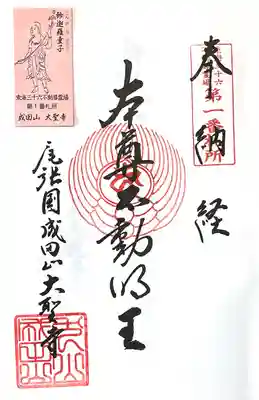 奉納経
第一番札所
本尊不動明王
尾張国成田山大聖寺
矜迦羅童子
東海三十六不動尊霊場
第1番札所
成田山 大聖寺